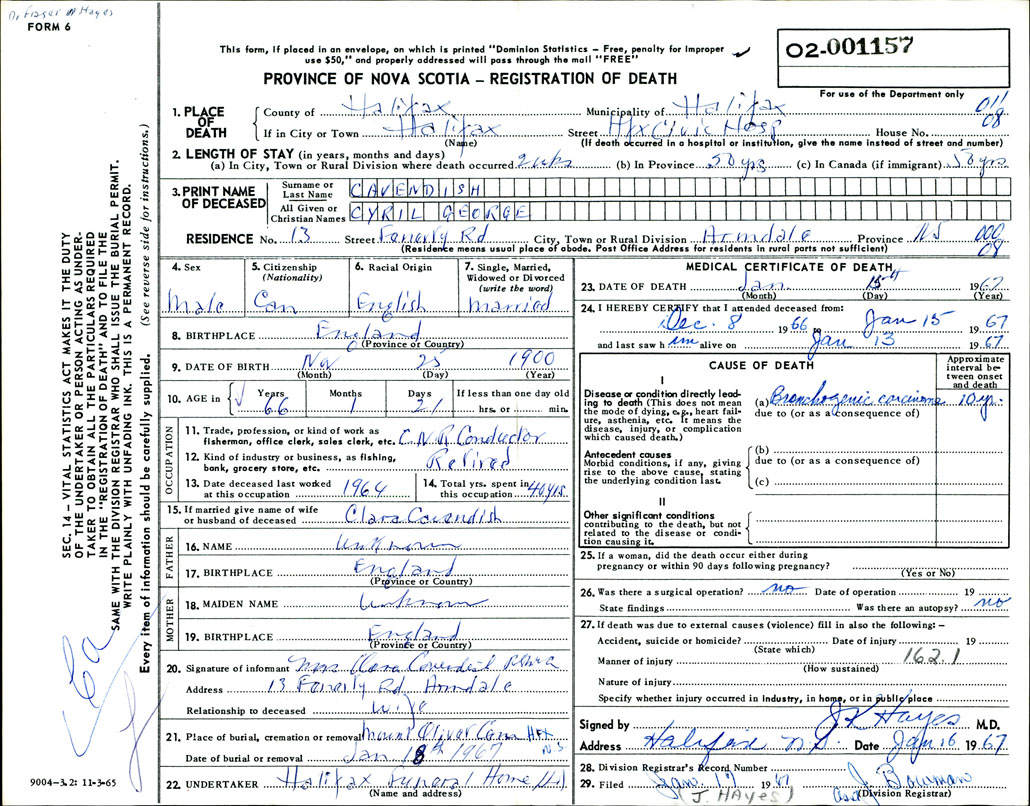 FORM 6
This form, if placed in an envelope, on which is printed "Dominion Statistics – Free, penalty for improper
use $50," and properly addressed will pass through the mail "FREE"
O2-001157
PROVINCE OF NOVA SCOTIA – REGISTRATION OF DEATH
For use of the Department only
1. PLACE OF DEATH
County of Halifax Municipality of Halifax 011
If in City or Town Halifax Street Hfx Civic Hosp House No. 08
(Name) (If death occurred in a hospital or institution, give the name instead of street and number)
2. LENGTH OF STAY (in years, months and days)
(a) In City, Town or Rural Division where death occurred 2 wks (b) In Province 50 yrs (c) In Canada (if immigrant) 50 yrs
3. PRINT NAME OF DECEASED
Surname or Last Name CAVENDISH
All Given or Christian Names CYRIL GEORGE
RESIDENCE No. 13 Street Rd City, Town or Rural Division Armdale Province NS 000
(Residence means usual place of abode. Post Office Address for residents in rural parts not sufficient) 08
4. Sex Male
5. Citizenship (Nationality) Can
6. Racial Origin English
7. Single, Married, Widowed or Divorced (write the word) married
8. BIRTHPLACE England
(Province or Country)
9. DATE OF BIRTH Nov 25 1900
(Month) (Day) (Year)
10. AGE in Years 66 Months 1 Days 21 If less than one day old
hrs. or min.
OCCUPATION
11. Trade, profession, or kind of work as fisherman, office clerk, sales clerk, etc. C.N.R Conductor
12. Kind of industry or business, as fishing, bank, grocery store, etc. Retired
13. Date deceased last worked at this occupation 1964
14. Total yrs. spent in this occupation 40 yrs.
15. If married give name of wife or husband of deceased Clara Cavendish
FATHER
16. NAME Unknown
17. BIRTHPLACE England
(Province or Country)
MOTHER
18. MAIDEN NAME Unknown
19. BIRTHPLACE England
(Province or Country)
20. Signature of informant Mrs Clara
Address 13 Rd. Armdale
Relationship to deceased wife
21. Place of burial, cremation or removal Mount Olivet Cem Hfx N.S.
Date of burial or removal Jan 18th 1967
22. UNDERTAKER Halifax Funeral Home
(Name and address)
MEDICAL CERTIFICATE OF DEATH
23. DATE OF DEATH Jan. 15th 1967
(Month) (Day) (Year)
24. I HEREBY CERTIFY that I attended deceased from:
Dec. 8 1966 to Jan 15 1967
and last saw him alive on Jan 13 1967
CAUSE OF DEATH
Approximate interval between onset and death
I
Disease or condition directly leading to death (This does not mean the mode of dying, e.g., heart failure, asthenia, etc. It means the disease, injury, or complication which caused death.)
(a) Bronchogenic carcinoma 10 y.
due to (or as a consequence of)
Antecedent causes
Morbid conditions, if any, giving rise to the above cause, stating the underlying condition last.
(b)
due to (or as a consequence of)
(c)
II
Other significant conditions
contributing to the death, but not related to the disease or condition causing it.
25. If a woman, did the death occur either during
pregnancy or within 90 days following pregnancy?
(Yes or No)
26. Was there a surgical operation? no Date of operation 19
State findings Was there an autopsy? no
27. If death was due to external causes (violence) fill in also the following: –
Accident, suicide or homicide? Date of injury 19
(State which)
Manner of injury 162.1
(How sustained)
Nature of injury
Specify whether injury occurred in industry, in home, or in public place
Signed by J K Hayes M.D.
Address Halifax N.S. Date Jan 16 1967
28. Division Registrar's Record Number
29. Filed Jan. 1967 Bowman
J. HAYES (Division Registrar)
SEC. 14 – VITAL STATISTICS ACT MAKES IT THE DUTY
OF THE UNDERTAKER OR PERSON ACTING AS UNDER-
TAKER TO OBTAIN ALL THE PARTICULARS REQUIRED
IN THE "REGISTRATION OF DEATH" AND TO FILE THE
SAME WITH THE DIVISION REGISTRAR WHO SHALL ISSUE THE BURIAL PERMIT.
WRITE PLAINLY WITH UNFADING INK. THIS IS A PERMANENT RECORD.
Every item of information should be carefully supplied. (See reverse side for instructions.)
9004–3.2: 11-3-65